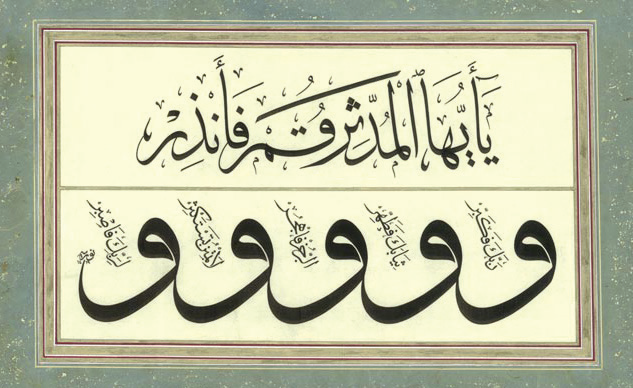 يَا أَيُّهَا الْمُدَّثِّرُ قُمْ فَأَنْذِرْ
وَرَبَّكَ فَكَبِّرْ وَثِيَابَكَ فَطَهِّرْ وَالرُّجْزَ فَاهْجُرْ وَلَا تَمْنُنْ تَسْتَكْثِرُ وَلِرَبِّكَ فَاصْبِرْ